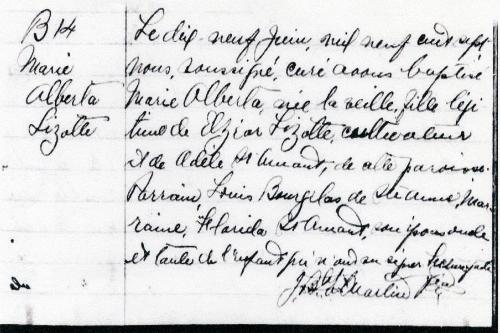 B14
Marie
Alberta
Lizotte
Le dix neuf Juin, mil neuf cent sept
nous, soussigné, curé avons baptisé
Marie Alberta, née la veille, fille légi
time de Elzéar Lizotte, cultivateur
et de Adèle St Amant, de cette paroisse.
Parrain, Louis Bourgelas de Ste Anne, Mar
raine, Florida St Amant, son épouse oncle
et tante de l'enfant qui n'ont su signer
J. Martin Ptre